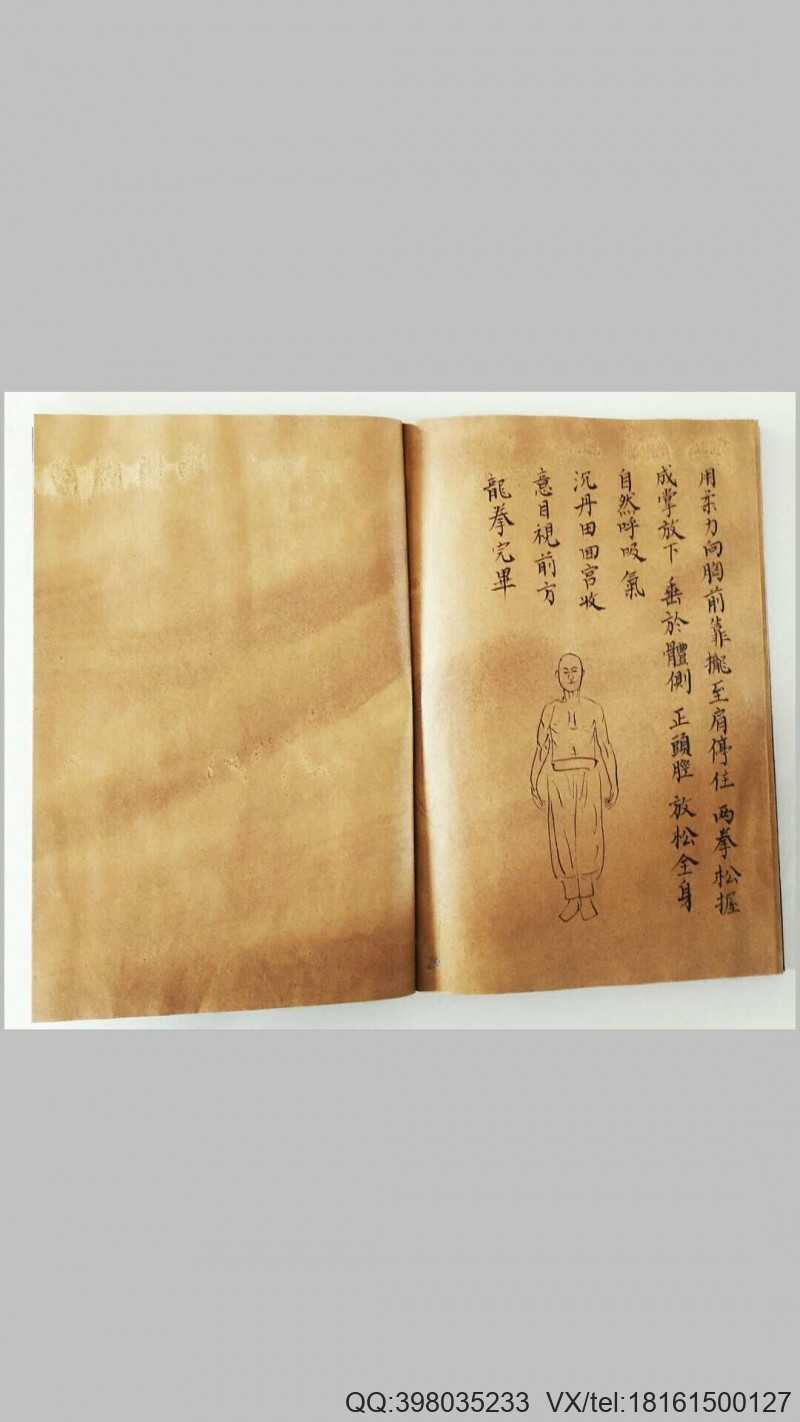 用柔力向胸前靠攏至肩停住 兩拳松握
成掌放下 垂於體側 正頭脛 放松全身
自然呼吸氣
沉丹田回宮收
意目視前方
龍拳完畢
QQ:398035233 VX/tel:18161500127